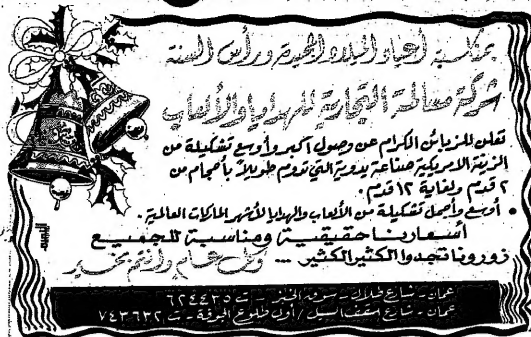 بمناسبة أعياد الميلاد المجيدة ورأس السنة
شركة معالجة التجارية للهدايا والألعاب
تعلن للزبائن الكرام عن وصول أكبر وأوسع تشكيلة من
الزينة الامريكية صناعة يدوية التي تدوم طويلاً بأحجام من
٢ قدم ولغاية ١٢ قدم.
• أوسع وأجمل تشكيلة من الألعاب والهدايا لأشهر الماركات العالمية.
أسعارنا حقيقية ومناسبة للجميع
زورونا تجدوا الكثير الكثير ... وكل عام وأنتم بخير
عمان - شارع طلال - سوق الخبز - ت ٦٢٤٤٣٥
عمان - شارع سقف السيل / أول طلوع الجوفة - ت ٧٤٣٦٣٢